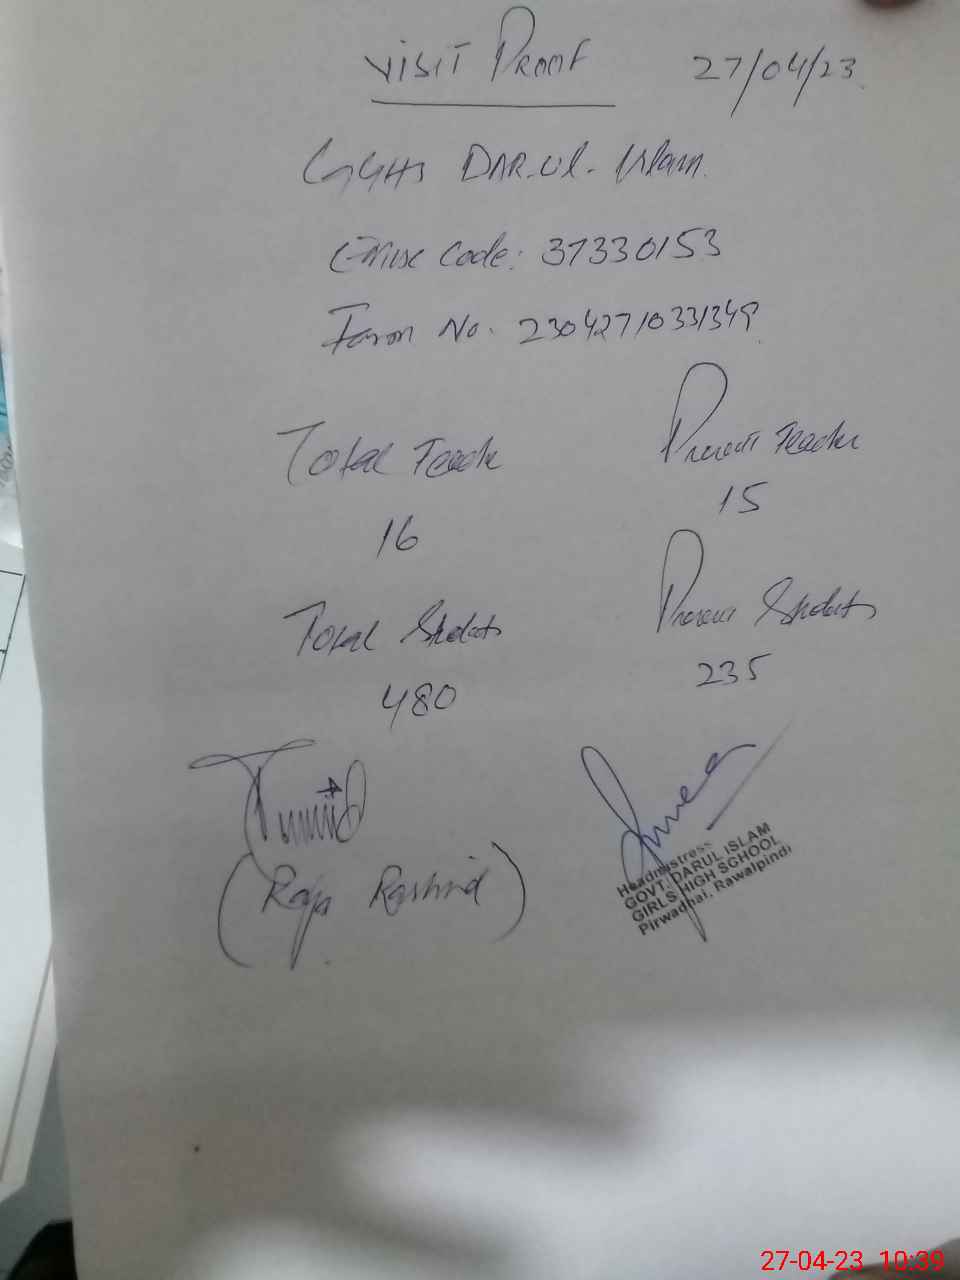 VISIT PROOF 27/04/23
GGHS DAR-ul-Islam
Emise Code: 37330153
Form No. 23042710331349
Total Teacher Present Teacher
16 15
Total Students Present Students
480 235
(Raja Rashid)
Headmistress
GOVT. DARUL ISLAM
GIRLS HIGH SCHOOL
Pirwadhai, Rawalpindi
27-04-23 10:39